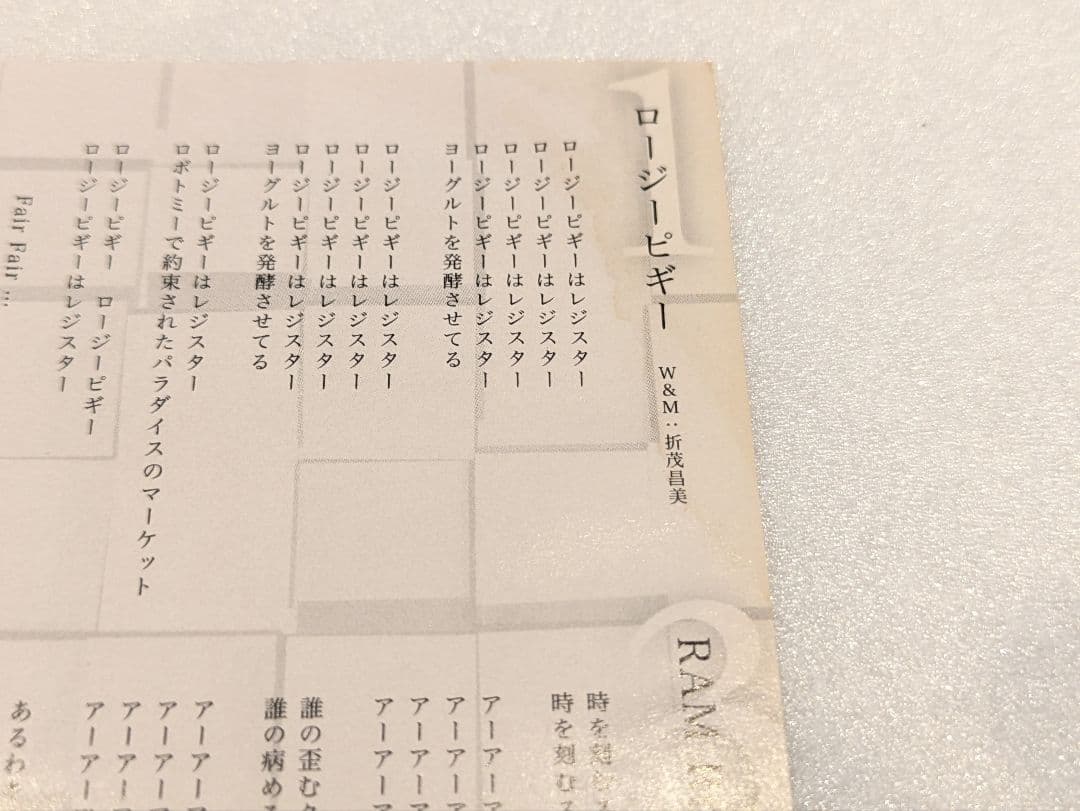 1
ロージーピギー
W&M：折茂昌美
ロージーピギーはレジスター
ロージーピギーはレジスター
ロージーピギーはレジスター
ロージーピギーはレジスター
ヨーグルトを発酵させてる
ロージーピギーはレジスター
ロージーピギーはレジスター
ロージーピギーはレジスター
ロージーピギーはレジスター
ヨーグルトを発酵させてる
ロージーピギーはレジスター
ロボトミーで約束されたパラダイスのマーケット
ロージーピギー ロージーピギー
ロージーピギーはレジスター
Fair Fair …
RAM
時を刻む
時を刻む
アーアーア
アーアーア
アーアーア
アーアーア
誰の歪む
誰の病める
アーアーア
アーアーア
アーアーア
アーアーア
あるわ